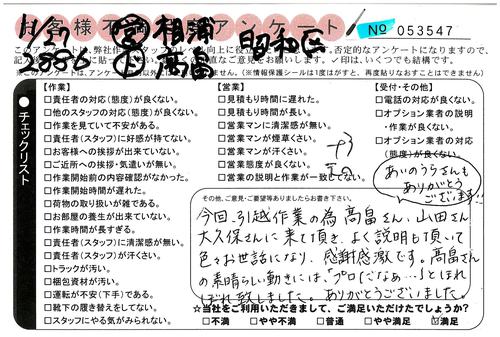 お客様不満足度アンケート
No 053547
11/27
3886
営 相浦
昭和区
高畠
※このアンケートは、
(※情報保護シールは1度はがすと、再度貼りなおすことはできません)
●チェックリスト
【作業】
□責任者の対応(態度)が良くない。
□他のスタッフの対応(態度)が良くない。
□作業を見ていて不安がある。
□責任者(スタッフ)に好感が持てない。
□お客様への挨拶が出来ていない。
□ご近所への挨拶・気遣いが無い。
□作業開始前の内容確認がなかった。
□作業開始時間が遅れた。
□荷物の取り扱いが雑である。
□お部屋の養生が出来ていない。
□作業時間が長すぎる。
□責任者(スタッフ)に清潔感が無い。
□責任者(スタッフ)が汗くさい。
□トラックが汚い。
□梱包資材が汚い。
□運転が不安(下手)である。
□靴下の履き替えをしてない。
□スタッフにやる気がみられない。
【営業】
□見積もり時間に遅れた。
□見積もり時間が長い。
□営業マンに清潔感が無い。
□営業マンが煙草くさい。
□営業マンが汗くさい。
□営業態度が良くない。
□営業の説明と作業が一致してない。
【受付・その他】
□電話の対応が良くない。
□オプション業者の説明
・作業が良くない。
□オプション業者の対応
(態度)が良くない。
あいのうらさんも
ありがとう
ございます!!
その他、ご意見・ご要望等ありましたらお書き下さい。
今回、引越作業の為 高畠さん、山田さん
大久保さんに来て頂き、よく説明も頂いて
色々お世話になり、感謝感激です。高畠さん
の素晴らしい動きには、「プロだなぁ…」とほれ
ぼれ致しました。ありがとうございました。
☆当社をご利用いただきまして、ご満足いただけたでしょうか?
□不満 □やや不満 □普通 □やや満足 ☑満足